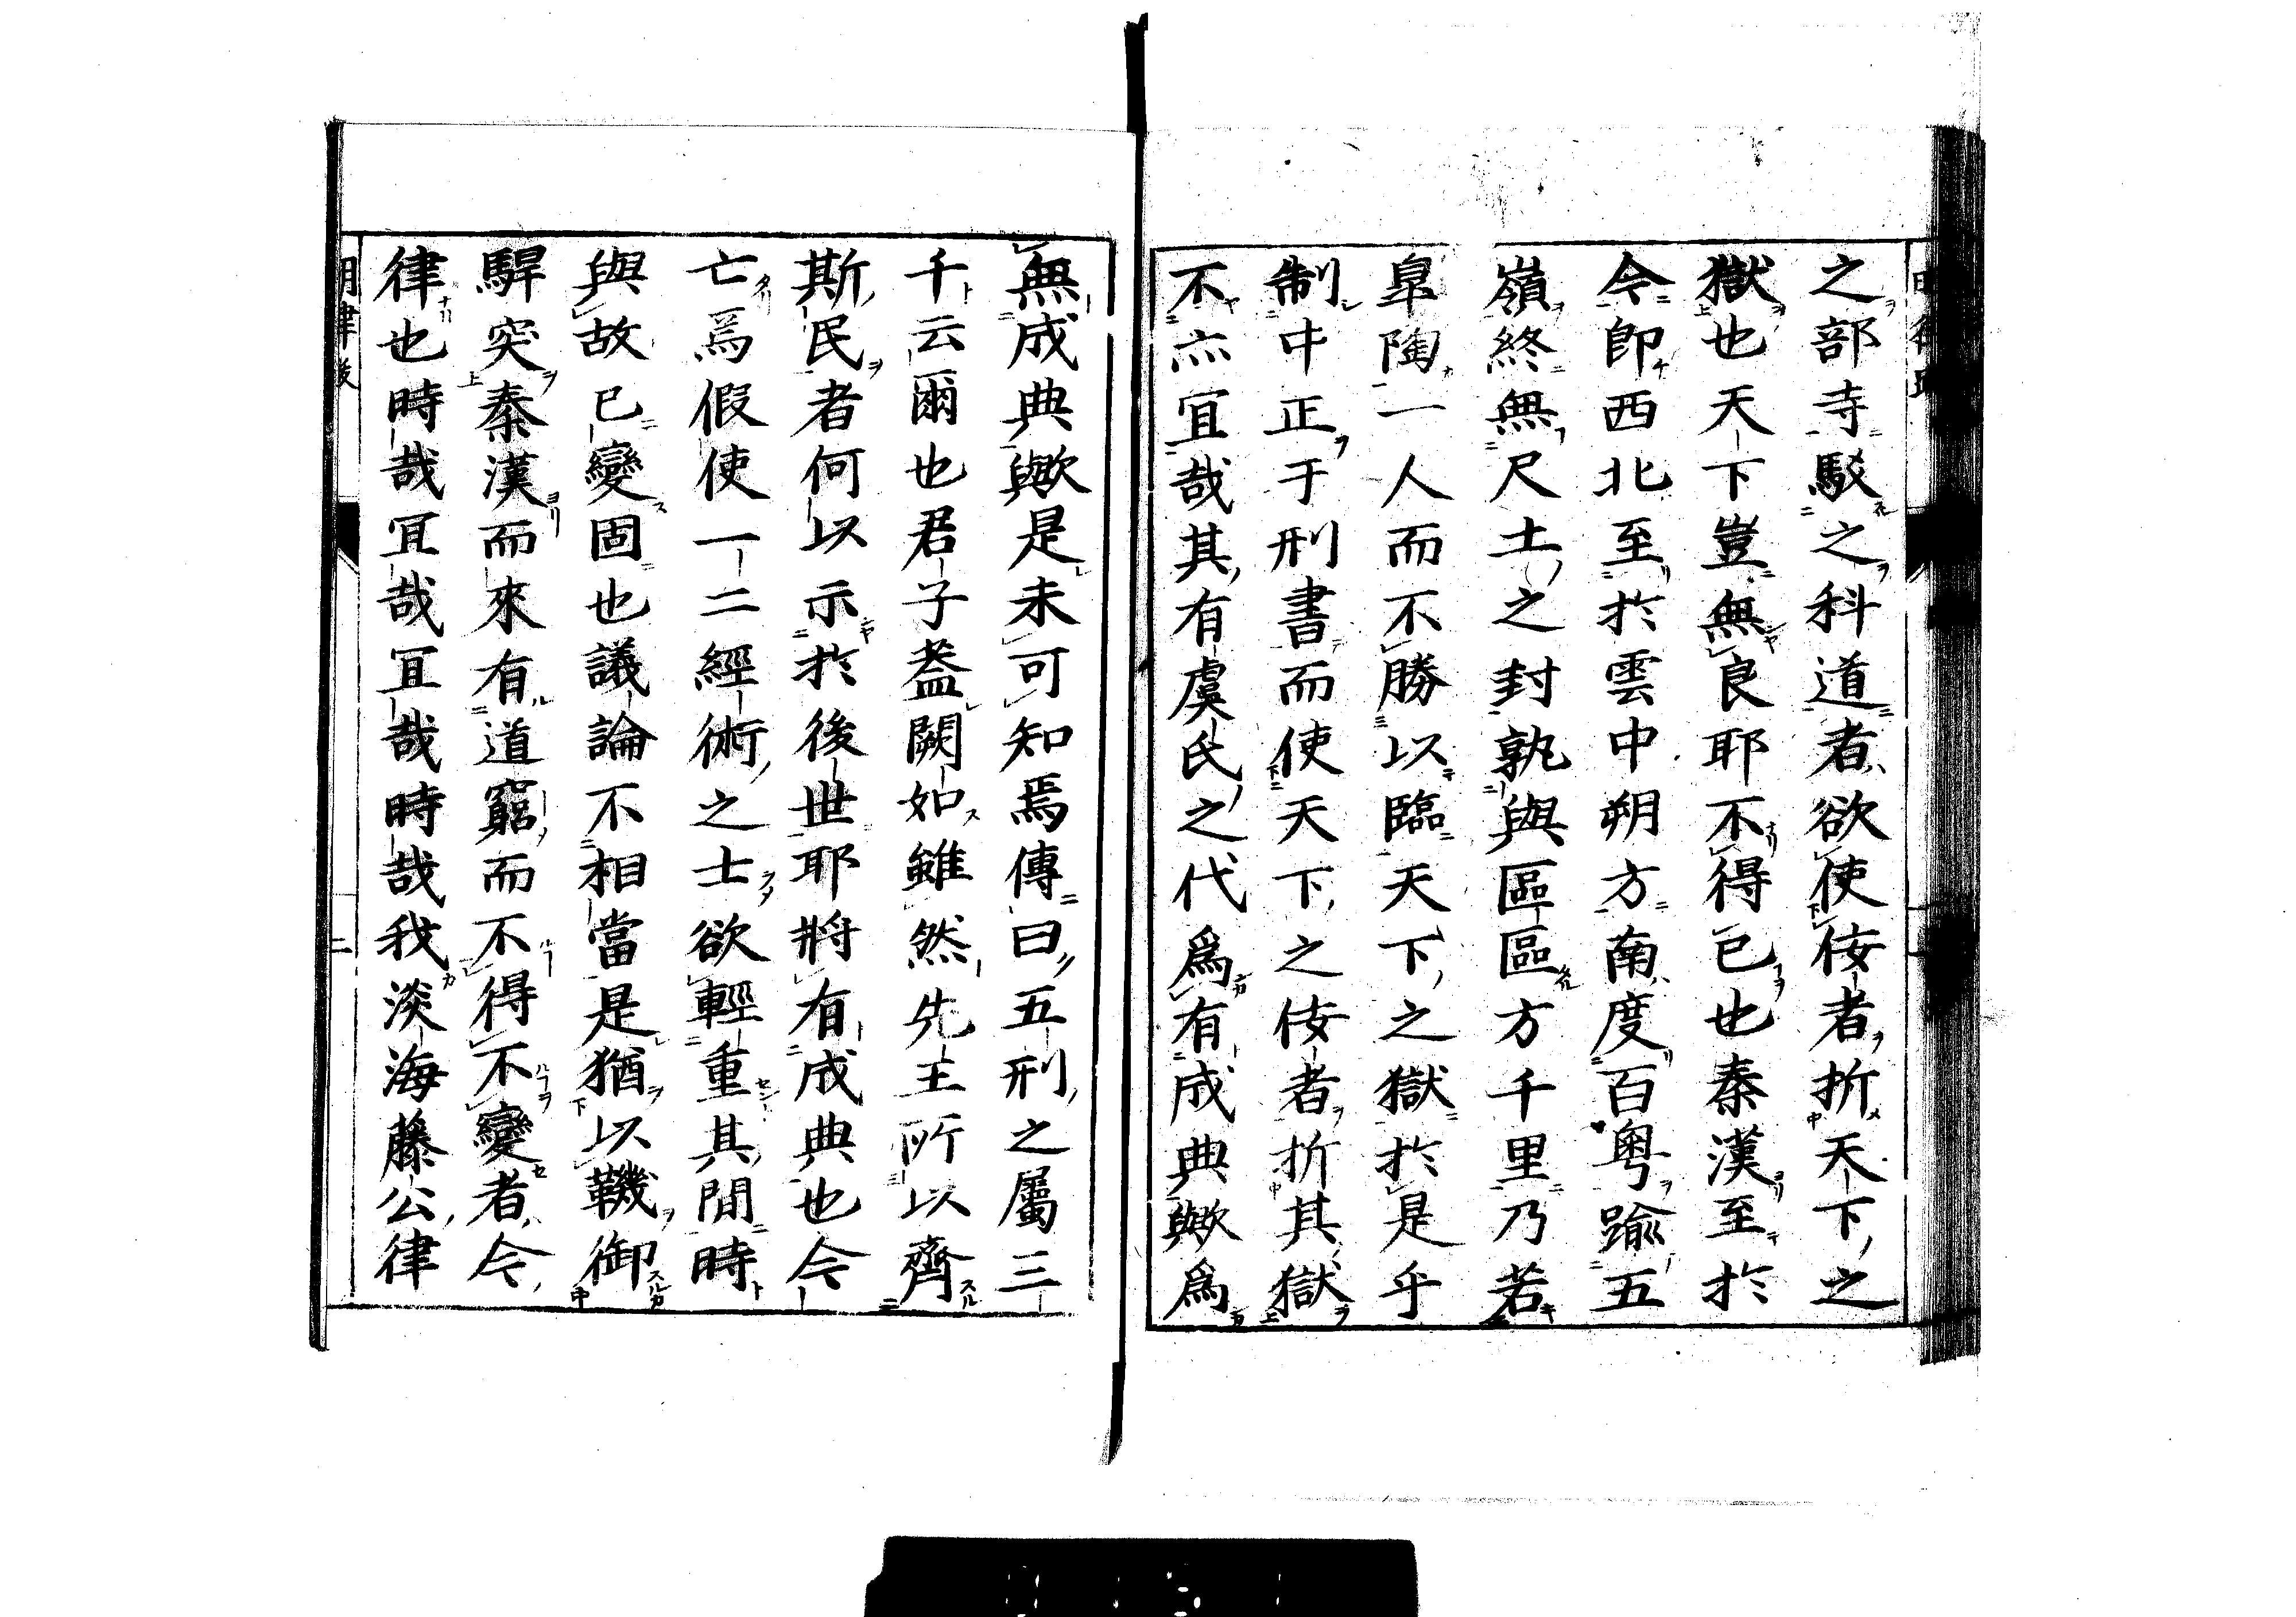 之部寺駁之科道者欲使侒者折天下之
獄也天下豈無良耶不得已也秦漢至於
今卽西北至於雲中朔方南度百粤踰五
嶺終無尺土之封孰與區區方千里乃若
皐陶一人而不勝以臨天下之獄於是乎
制中正于刑書而使天下之侒者折其獄
不亦宜哉其有虞氏之代爲有成典歟爲
無成典歟是未可知焉傳曰五刑之屬三
千云爾也君子蓋闕如雖然先王所以齊
斯民者何以示於後世耶將有成典也今
亡焉假使一二經術之士欲輕重其間時
與故已變固也議論不相當是猶以鞿御
駻突秦漢而來有道窮而不得不變者今
律也時哉宜哉宜哉時哉我淡海藤公律
二